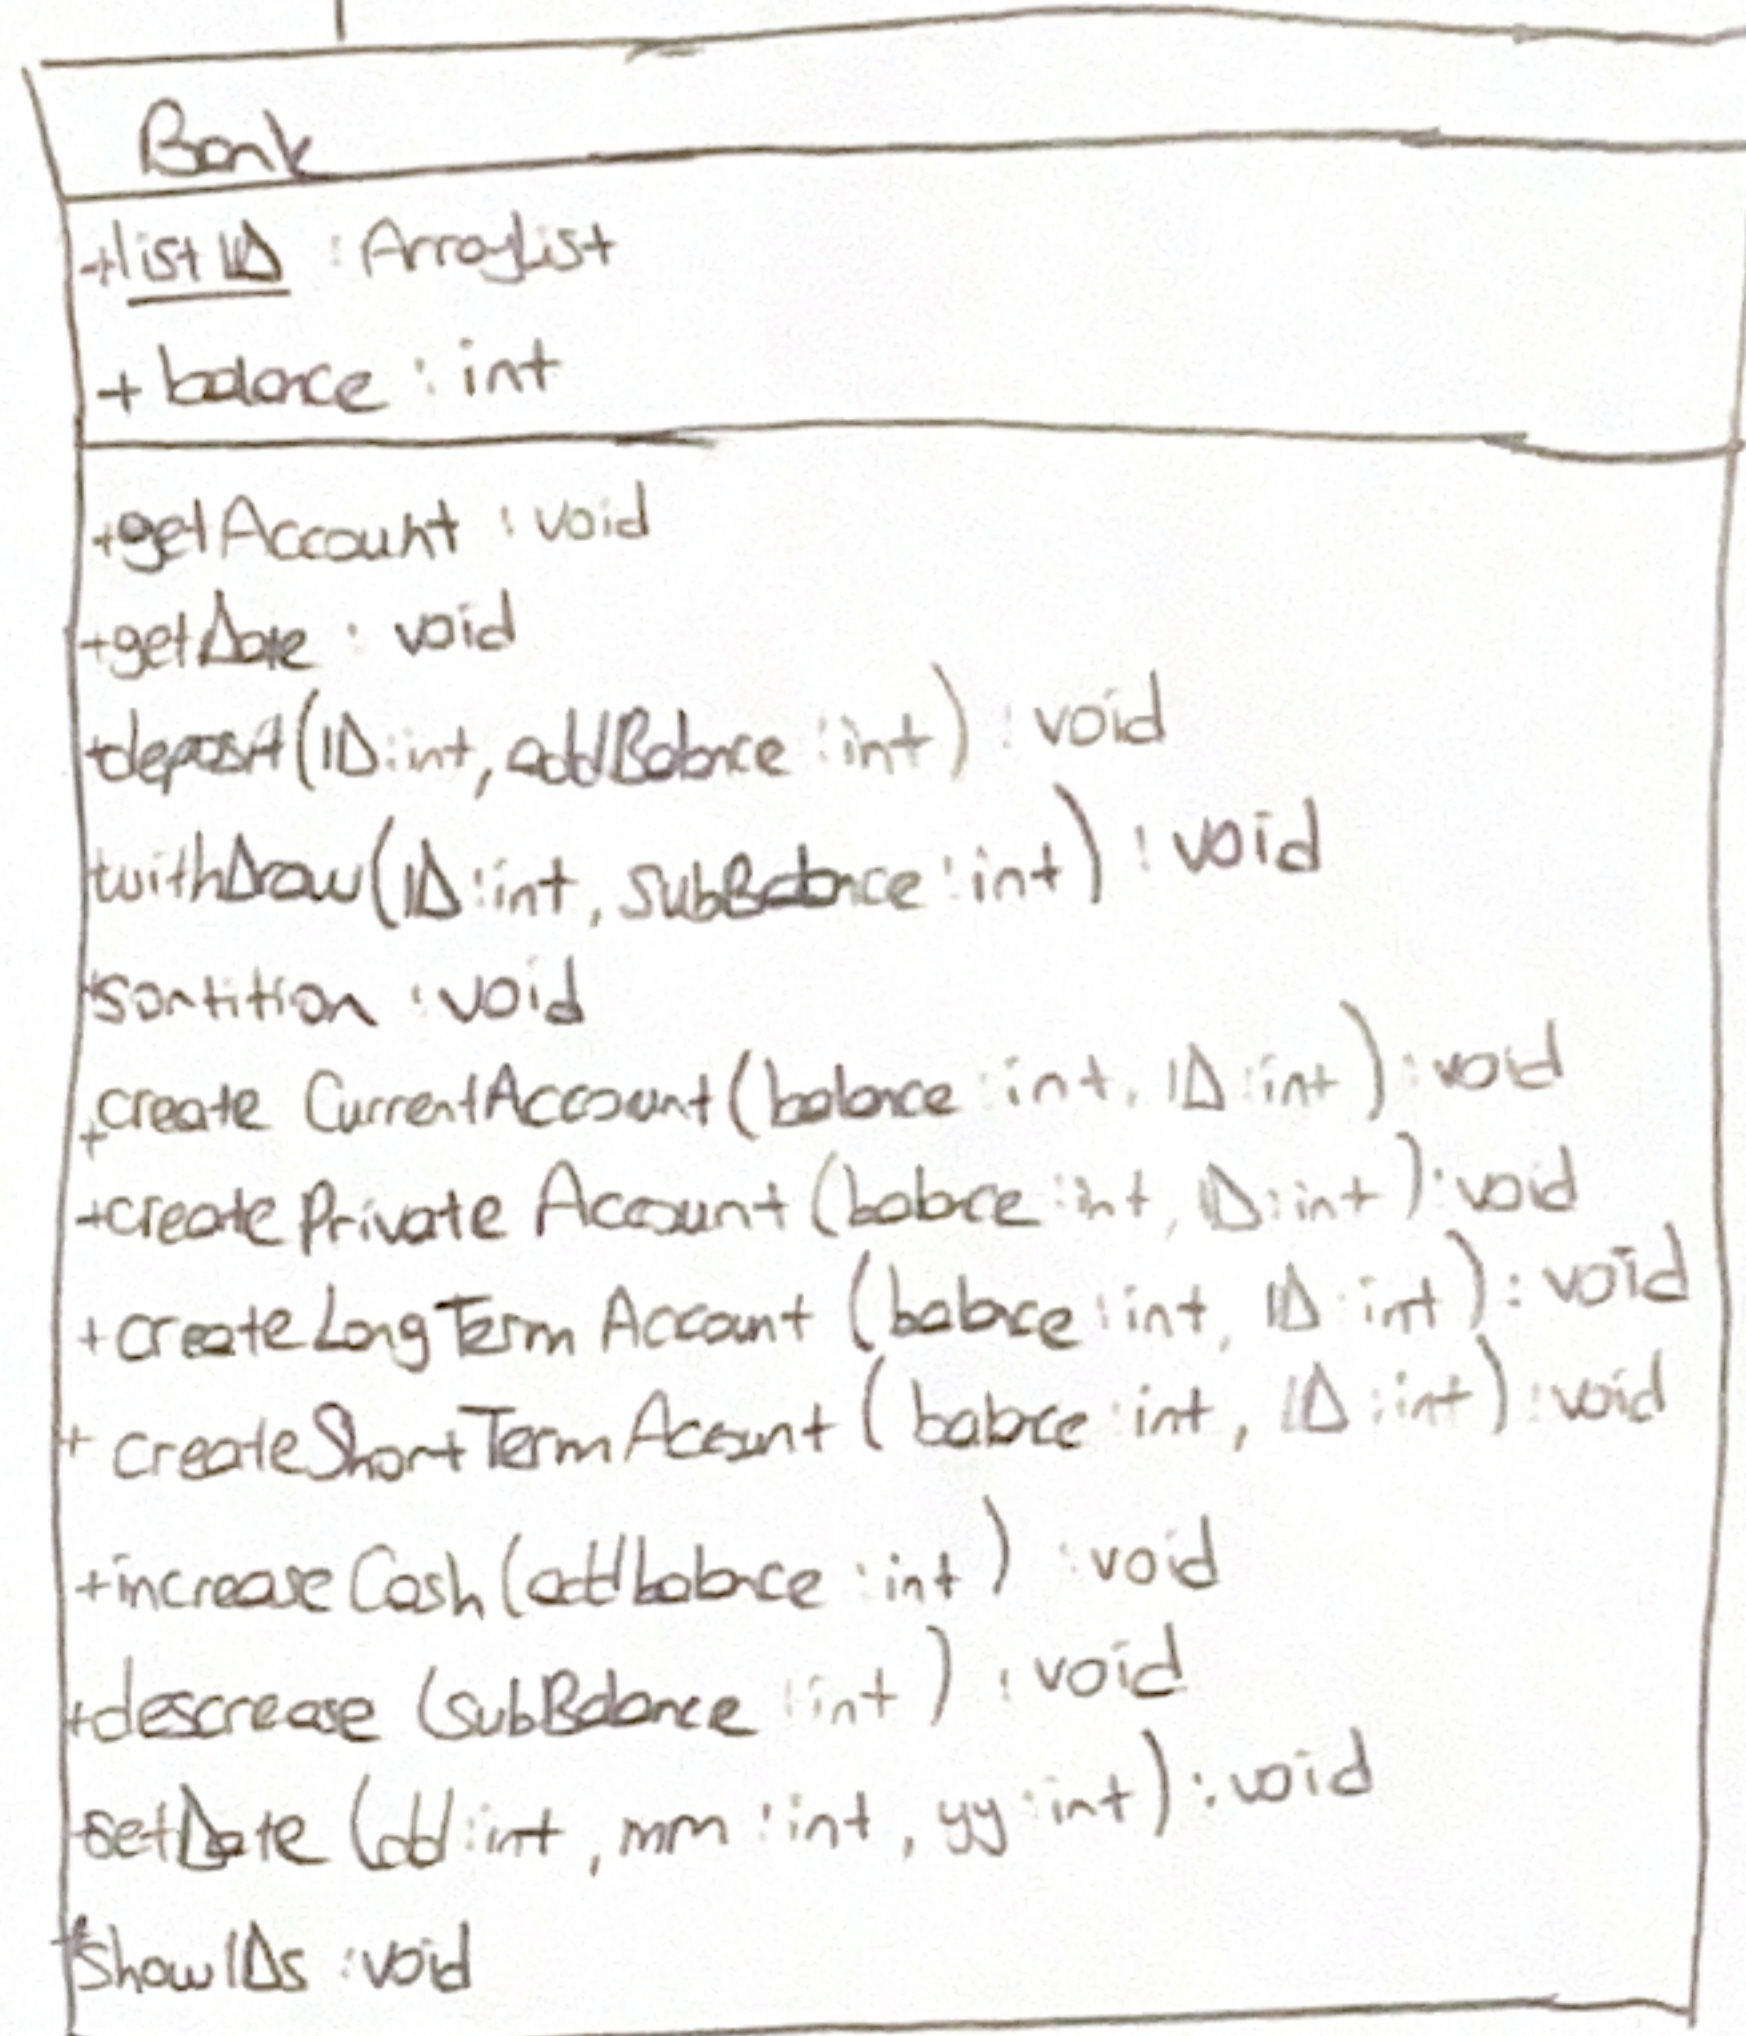 Bank
+listID : ArrayList
+ balance : int
+getAccount : void
+getDate : void
+deposit(ID:int, addBalance : int) : void
+withDraw(ID:int, subBalance : int) : void
+sortition : void
+create CurrentAccount(balance : int, ID:int) : void
+create Private Account (balance : int, ID:int) : void
+createLong Term Account (balance : int, ID : int) : void
+ createShort Term Account (balance : int, ID : int) : void
+increase Cash (addbalance : int) : void
+descrease (subBalance : int) : void
+setDate (dd : int, mm : int, yy : int) : void
+showIDs : void